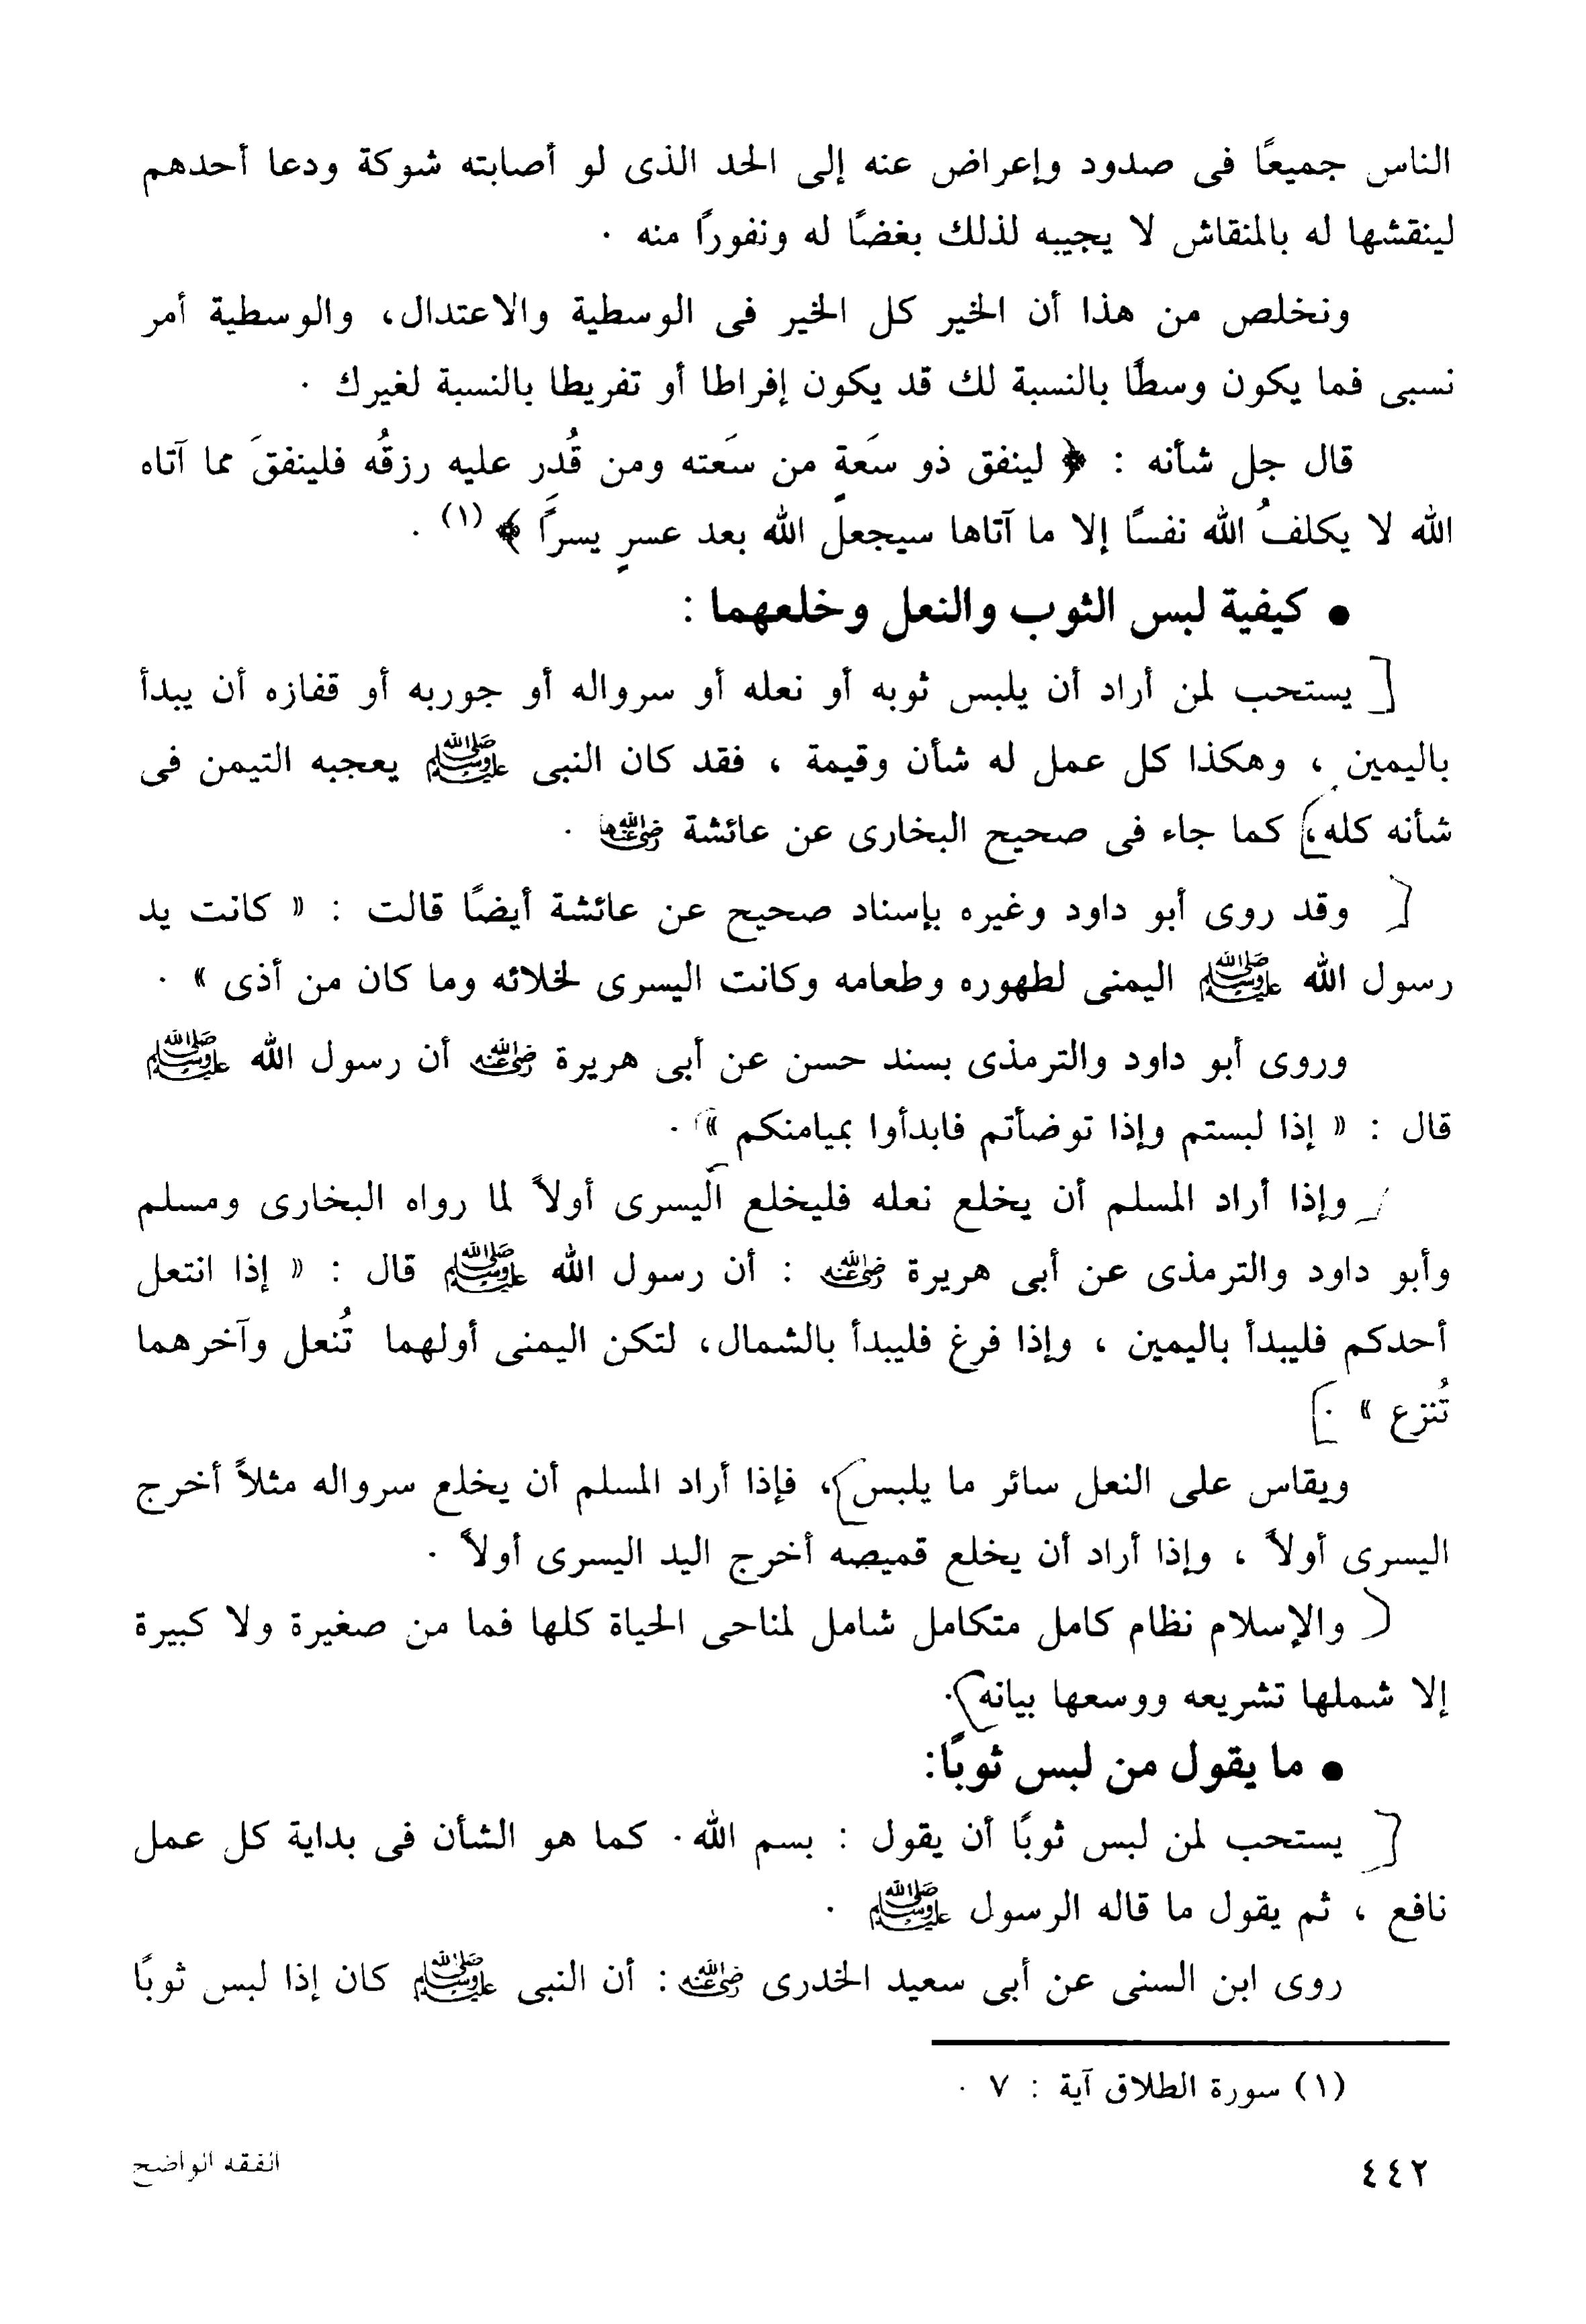 الناس جميعًا فى صدود وإعراض عنه إلى الحد الذى لو أصابته شوكة ودعا أحدهم
لينقشها له بالمنقاش لا يجيبه لذلك بغضًا له ونفورًا منه .
ونخلص من هذا أن الخير كل الخير فى الوسطية والاعتدال، والوسطية أمر
نسبى فما يكون وسطًا بالنسبة لك قد يكون إفراطا أو تفريطا بالنسبة لغيرك .
قال جل شأنه : ﴿ لينفق ذو سَعةٍ من سَعته ومن قُدِر عليه رزقُه فلينفقَ مما آتاه
الله لا يكلفُ الله نفسًا إلا ما آتاها سيجعل الله بعد عسرٍ يسرًا ﴾ (١) .
• كيفية لبس الثوب والنعل وخلعهما :
[ يستحب لمن أراد أن يلبس ثوبه أو نعله أو سرواله أو جوربه أو قفازه أن يبدأ
باليمين ، وهكذا كل عمل له شأن وقيمة ، فقد كان النبى ﷺ يعجبه التيمن فى
شأنه كله،] كما جاء فى صحيح البخارى عن عائشة رضي الله عنها .
[ وقد روى أبو داود وغيره بإسناد صحيح عن عائشة أيضًا قالت : « كانت يد
رسول الله ﷺ اليمنى لطهوره وطعامه وكانت اليسرى لخلائه وما كان من أذى » .
وروى أبو داود والترمذى بسند حسن عن أبى هريرة رضي الله عنه أن رسول الله ﷺ
قال : « إذا لبستم وإذا توضأتم فابدأوا بميامنكم » .
وإذا أراد المسلم أن يخلع نعله فليخلع اليسرى أولاً لما رواه البخارى ومسلم
وأبو داود والترمذى عن أبى هريرة رضي الله عنه : أن رسول الله ﷺ قال : « إذا انتعل
أحدكم فليبدأ باليمين ، وإذا فرغ فليبدأ بالشمال، لتكن اليمنى أولهما تُنعل وآخرهما
تُنزع » .]
ويقاس على النعل سائر ما يلبس]، فإذا أراد المسلم أن يخلع سرواله مثلاً أخرج
اليسرى أولاً ، وإذا أراد أن يخلع قميصه أخرج اليد اليسرى أولاً .
( والإسلام نظام كامل متكامل شامل لمناحى الحياة كلها فما من صغيرة ولا كبيرة
إلا شملها تشريعه ووسعها بيانه].
• ما يقول من لبس ثوبًا:
[ يستحب لمن لبس ثوبًا أن يقول : بسم الله . كما هو الشأن فى بداية كل عمل
نافع ، ثم يقول ما قاله الرسول ﷺ .
روى ابن السنى عن أبى سعيد الخدرى رضي الله عنه : أن النبى ﷺ كان إذا لبس ثوبًا
(١) سورة الطلاق آية : ٧ .
٤٤٢ الفقه الواضح